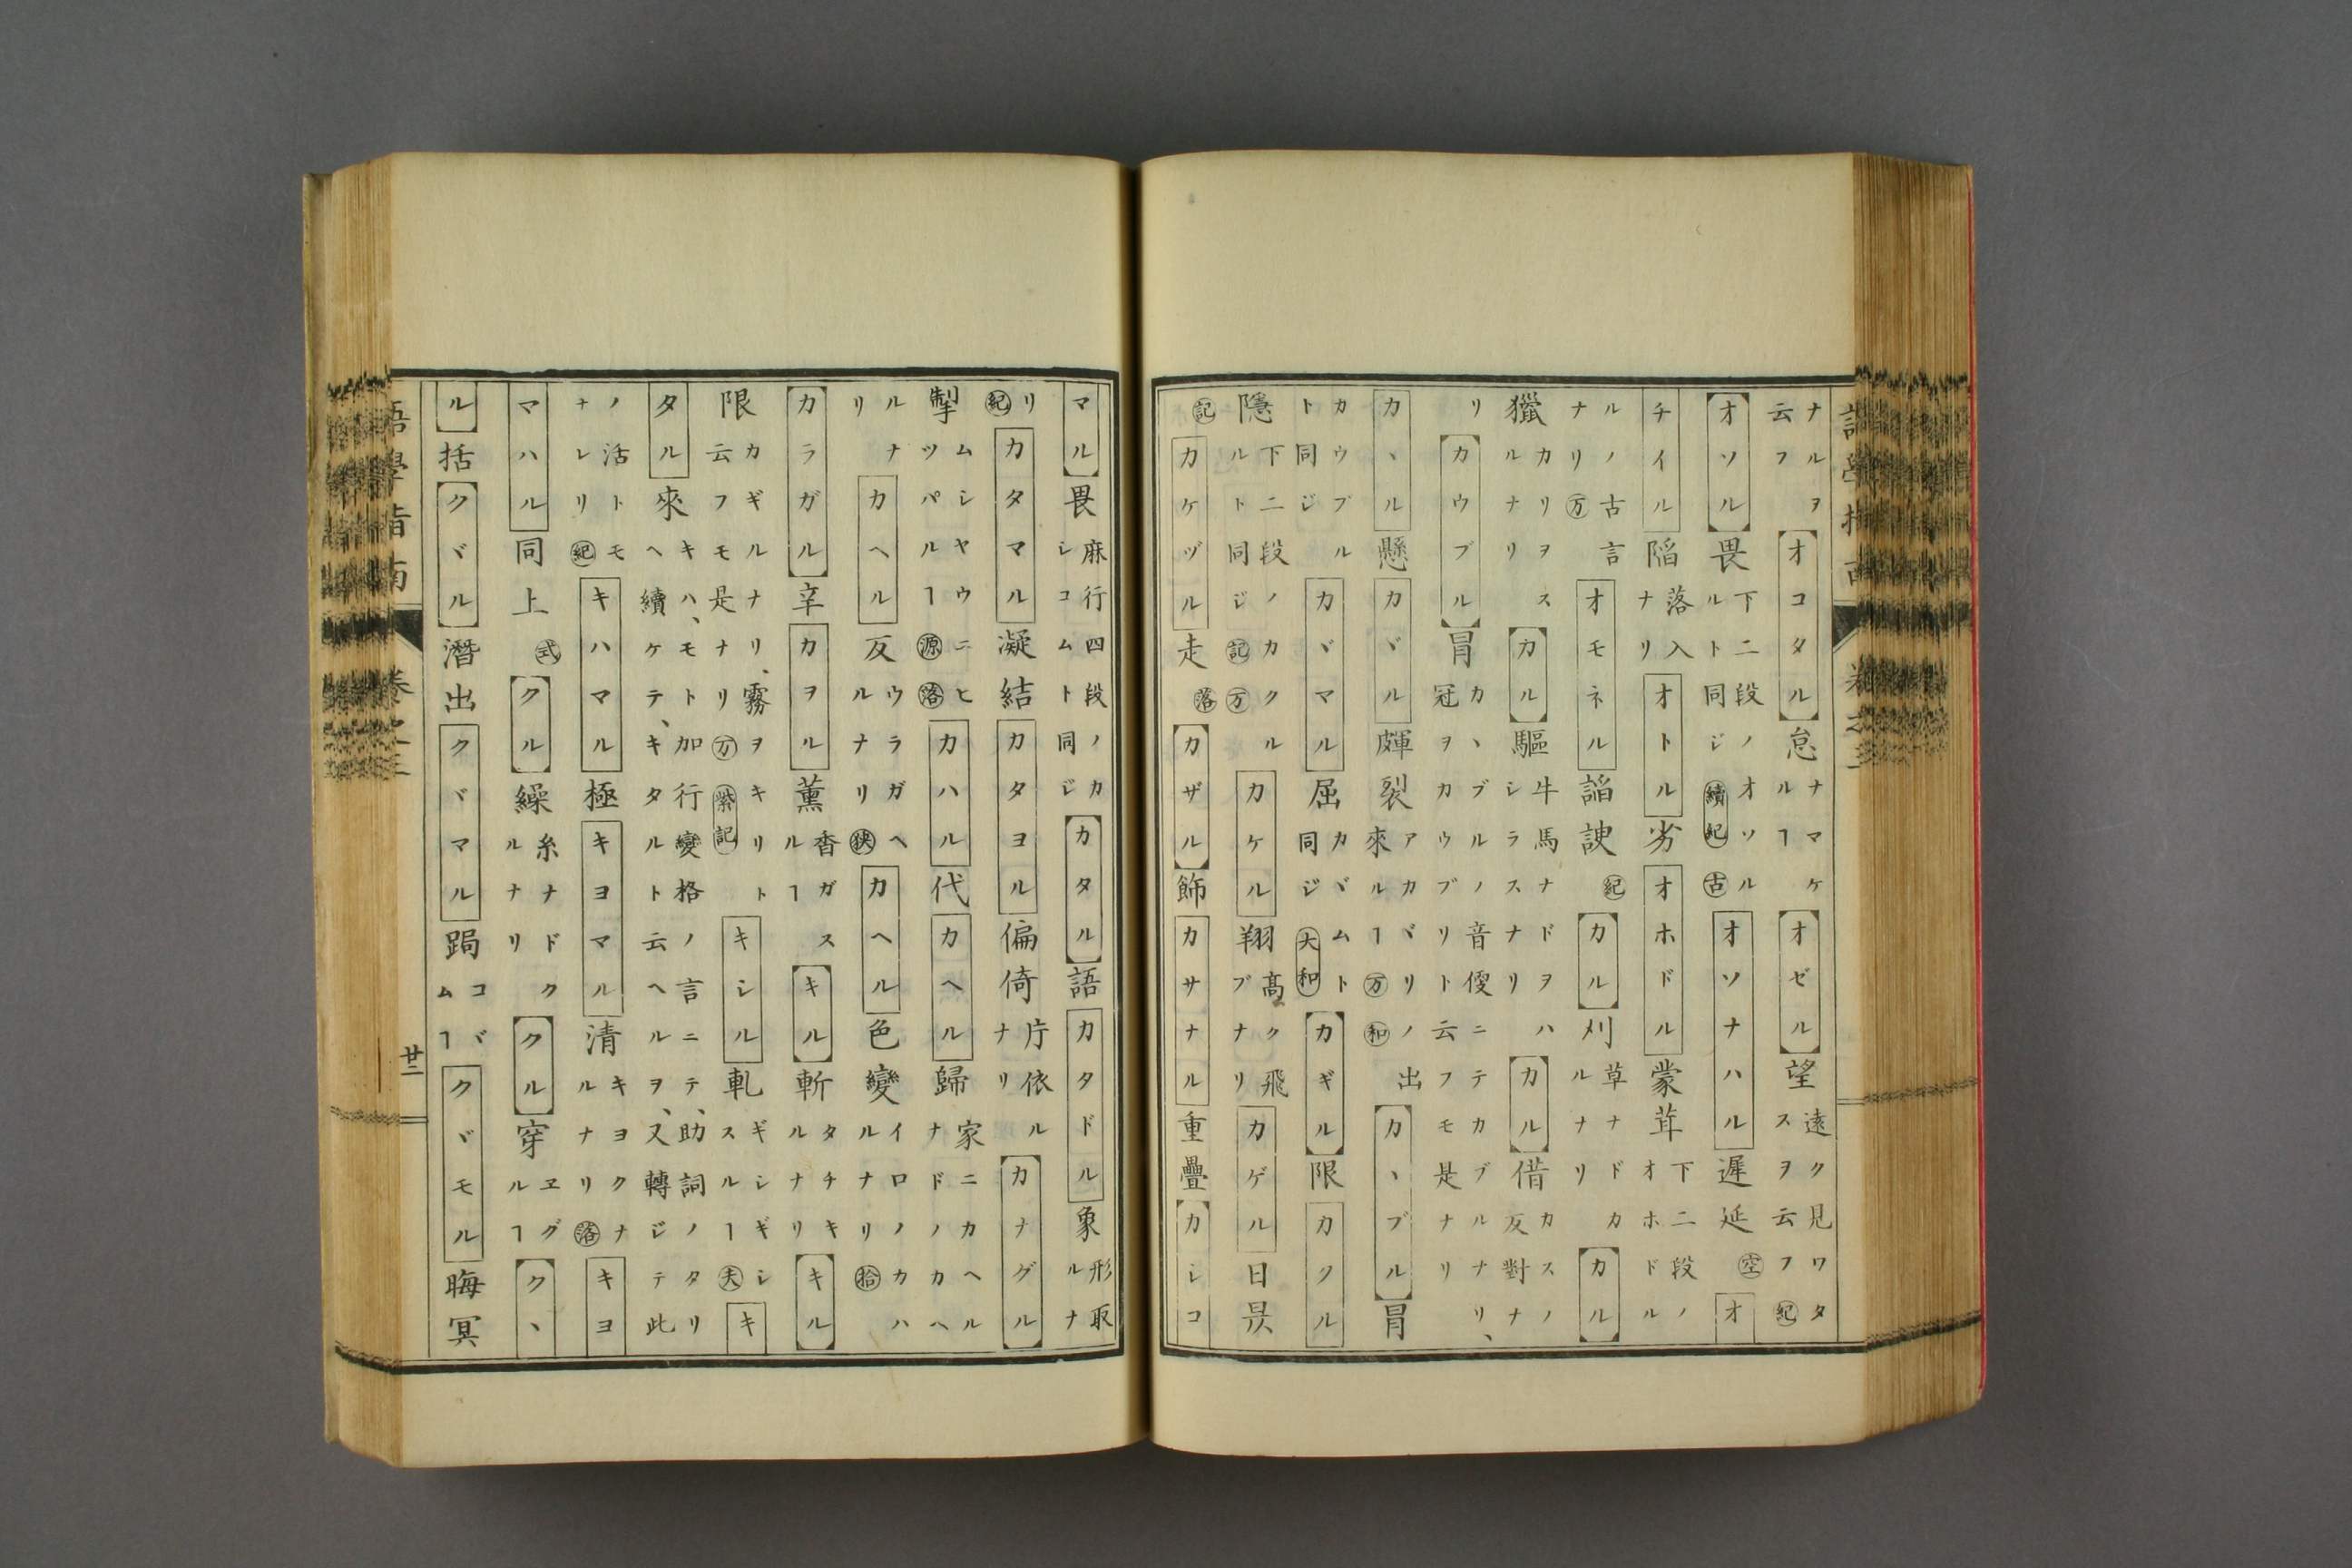 ナルヲ云フオコタル怠ナマケルヿオゼル望遠ク見ワタスヲ云フ紀
オソル畏下二段ノオソルルト同ジ續紀古オソナハル遲延空オ
チイル陷落入ナリオトル劣オホドル蒙茸下二段ノオホドル
ルノ古言ナリ万オモネル謟諛紀カル刈草ナドカルナリカル
獵カリヲスルナリカル驅牛馬ナドヲハシラスナリカル借カスノ反對ナ
リカウブル冐カヽブルノ音便ニテカブルナリ、冠ヲカウブリト云フモ是ナリ
カヽル懸カヾル皹裂アカヾリノ出來ルヿ万和カヽブル冐
カウブルト同ジカヾマル屈カヾムト同ジ大和カギル限カクル
隱下二段ノカクルルト同ジ記万カケル翔高ク飛ブナリカゲル日昃
記カケヅル走落カザル飾カサナル重疊カシコ
マル畏麻行四段ノカシコムト同ジカタル語カタドル象形取ルナ
リ紀カタマル凝結カタヨル偏倚片依ルナリカナグル
掣ムシヤウニヒツパルヿ源落カハル代カヘル歸家ニカヘルナドノカヘ
ルナリカヘル反ウラガヘルナリ狹カヘル色變イロノカハルナリ拾
カラガル辛カヲル薰香ガスルヿキル斬タチキルナリキル
限カギルナリ、霧ヲキリト云フモ是ナリ万紫記キシル軋ギシギシスルヿ夫キ
タル來キハ、モト加行變格ノ言ニテ、助詞ノタリヘ續ケテ、キタルト云ヘルヲ、又轉ジテ此
ノ活トモナレリ紀キハマル極キヨマル清キヨクナルナリ落キヨ
マハル同上式クル繰糸ナドクルナリクル穿ヱグルヿクヽ
ル括クヾル潛出クヾマル跼コヾムヿクヾモル晦冥
語學指南 卷之三 廿二